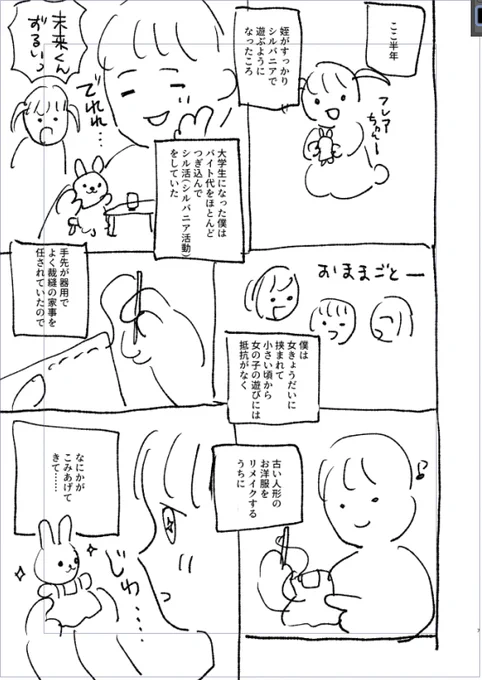 ここ半年
フレア
ちゃーん
姪がすっかり
シルバニアで
遊ぶように
なったころ
でれれ…
未来くん
ずるいっ
大学生になった僕は
バイト代をほとんど
つぎ込んで
シル活(シルバニア活動)
をしていた
おままごとー
僕は
女きょうだいに
挟まれて
小さい頃から
女の子の遊びには
抵抗がなく
手先が器用で
よく裁縫の家事を
任されていたので
♪
古い人形の
お洋服を
リメイクする
うちに
なにかが
こみあげて
きて……
じわ……